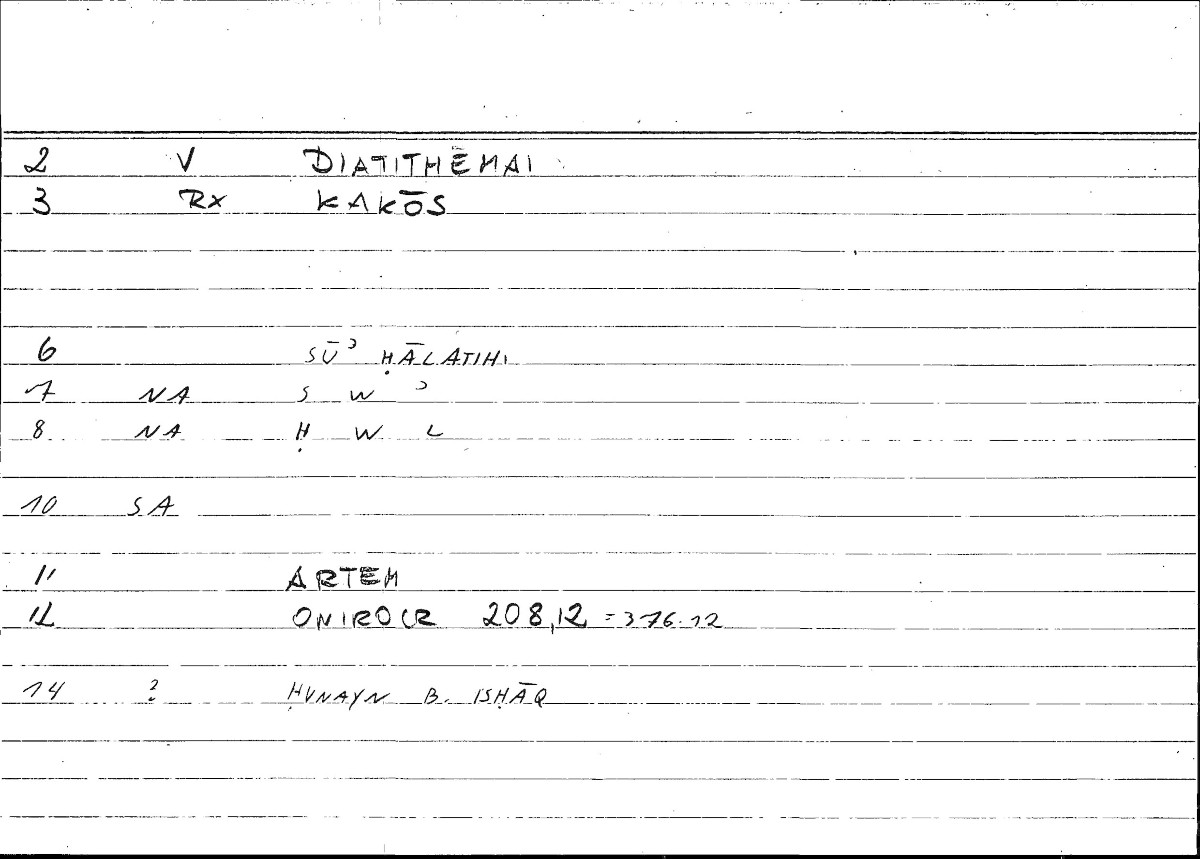 2 V DIATITHĒMAI
3 Rx KAKŌS
6 SŪʾ ḤĀLATIHI
7 NA S W ʾ
8 NA Ḥ W L
10 SA
11 ARTEM
12 ONIROCR 208,12 = 376.12
14 ? ḤUNAYN B. ISḤĀQ